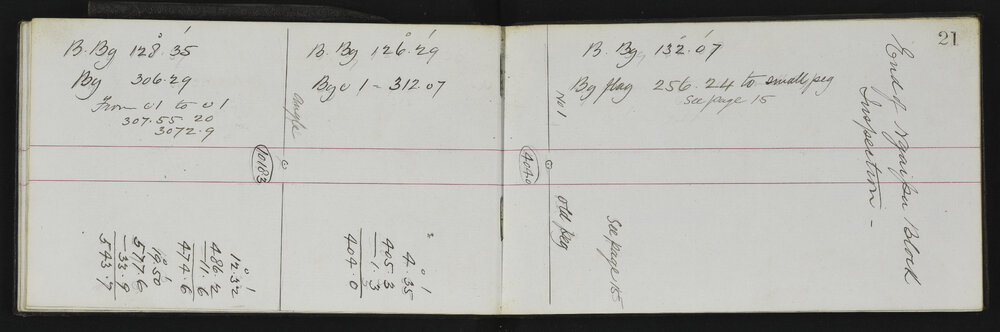 B. Bg 128° 35'
By 306.29
From 01 to 01
307.55 20
3072.9
10183
12° 32'
486.2
-11.6
474.6
19° 50'
577.6
-33.9
543.7
B. Bg 126° 29'
Bg 01 - 312.07
angle
4° 35'
405.3
-1.3
404.0
B. Bg 132° 07'
Bg flag 256.24 to small peg
See page 15
No 1
4040
old peg
See page 15
21
End of Ngaipu Block
Inspection -